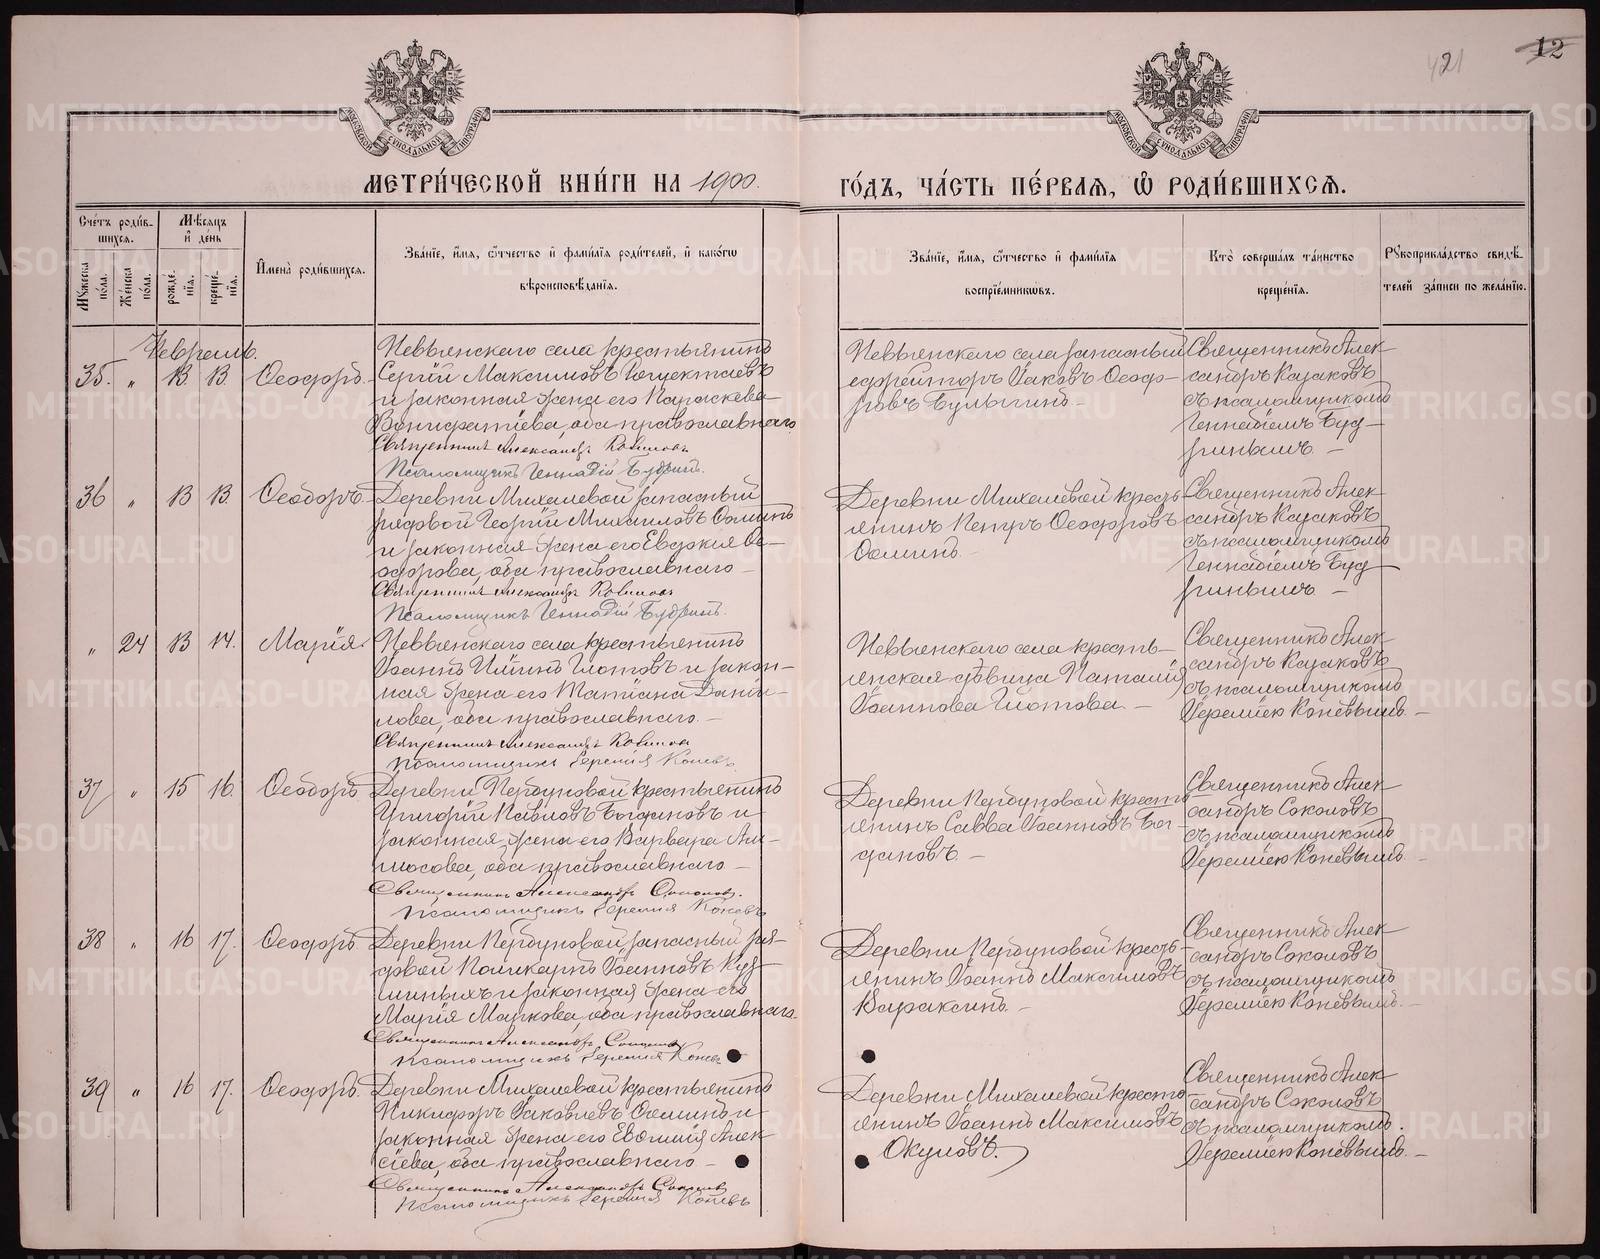 421
12
МЕТРИ́ЧЕСКОЙ КНИ́ГИ НА 1900.
ГО́ДЪ, ЧА́СТЬ ПЕ́РВАЯ, Ѡ РОДИ́ВШИХСЯ.
Сче́тъ роди́вшихся.
Мѣ́сяцъ и҆ де́нь
Мꙋжеска по́ла.
Же́нска по́ла.
рожде́нїѧ.
креще́нїѧ.
И҆мена̀ роди́вшихся.
Зва́нїе, и҆́мя, ѻ҆́тчество и҆ фами́лїя роди́телей, и҆ како́гѡ
вѣроисповѣ́данїя.
Зва́нїе, и҆́мя, ѻ҆́тчество и҆ фами́лїя
воспрїе́мникѡвъ.
Кто̀ соверша́лъ та́инство
креще́нїя.
Рꙋкоприкла́дство свидѣ́-
телей за́писи по жела́нїю.
Февраль.
35. " 13 13. Ѳеодоръ.
Невьянскаго села крестьянинъ
Сергій Максимовъ
и законная жена его Параскева
Вонифатіева, оба православнаго
Священникъ Александръ
Псаломщикъ Геннадій Будринъ.
Невьянскаго села запасный
ефрейторъ Іаковъ Ѳеодо-
ровъ Булыгинъ.—
Священникъ Алек-
сандръ Казаковъ
съ псаломщикомъ
Геннадіемъ Буд-
ринымъ.—
36 " 13 13. Ѳеодоръ
Деревни Михалевой запасный
рядовой Георгій Михаиловъ Ѳоминъ
и законная жена его Евдокія Ѳе-
одорова, оба православнаго—
Священникъ Александръ
Псаломщикъ Геннадій Будринъ.
Деревни Михалевой кресть-
янинъ Петръ Ѳеодоровъ
Ѳоминъ.
Священникъ Алек-
сандръ Казаковъ
съ псаломщикомъ
Геннадіемъ Буд-
ринымъ.—
" 24 13 14. Марія.
Невьянскаго села крестьянинъ
Іоаннъ Ильинъ Глотовъ и закон-
ная жена его Татіана Дани-
лова, оба православнаго.—
Священникъ Александръ
Псаломщикъ Іеремія Коневъ.
Невьянскаго села кресть-
янская дѣвица Наталія
Іоаннова Глотова.—
Священникъ Алек-
сандръ Казаковъ
съ псаломщикомъ
Іереміею Коневымъ.—
37 " 15 16. Ѳеодоръ
Деревни крестьянинъ
Григорій Павловъ Богдановъ и
законная жена его Варвара
оба православнаго—
Священникъ Александръ Соколовъ.
Псаломщикъ Іеремія Коневъ
Деревни кресть-
янинъ Савва Іоанновъ Бог-
дановъ.—
Священникъ Алек-
сандръ Соколовъ
съ псаломщикомъ
Іереміею Коневымъ.
38 " 16 17. Ѳеодоръ
Деревни запасный ря-
довой Поликарпъ Іоанновъ
и законная жена его
Марія Маркова, оба православнаго.
Священникъ Александръ Соколовъ
Псаломщикъ Іеремія Коневъ
Деревни кресть-
янинъ Іоаннъ Максимовъ
Вараксинъ.—
Священникъ Алек-
сандръ Соколовъ
съ псаломщикомъ
Іереміею Коневымъ.—
39 " 16 17. Ѳеодоръ.
Деревни Михалевой крестьянинъ
Никифоръ Іаковлевъ Ѳоминъ и
законная жена его Евѳимія Алек-
сіева, оба православнаго—
Священникъ Александръ Соколовъ
Псаломщикъ Іеремія Коневъ
Деревни Михалевой кресть-
янинъ Іоаннъ Максимовъ
Окуловъ.
Священникъ Алек-
сандръ Соколовъ
съ псаломщикомъ.
Іереміею Коневымъ.—